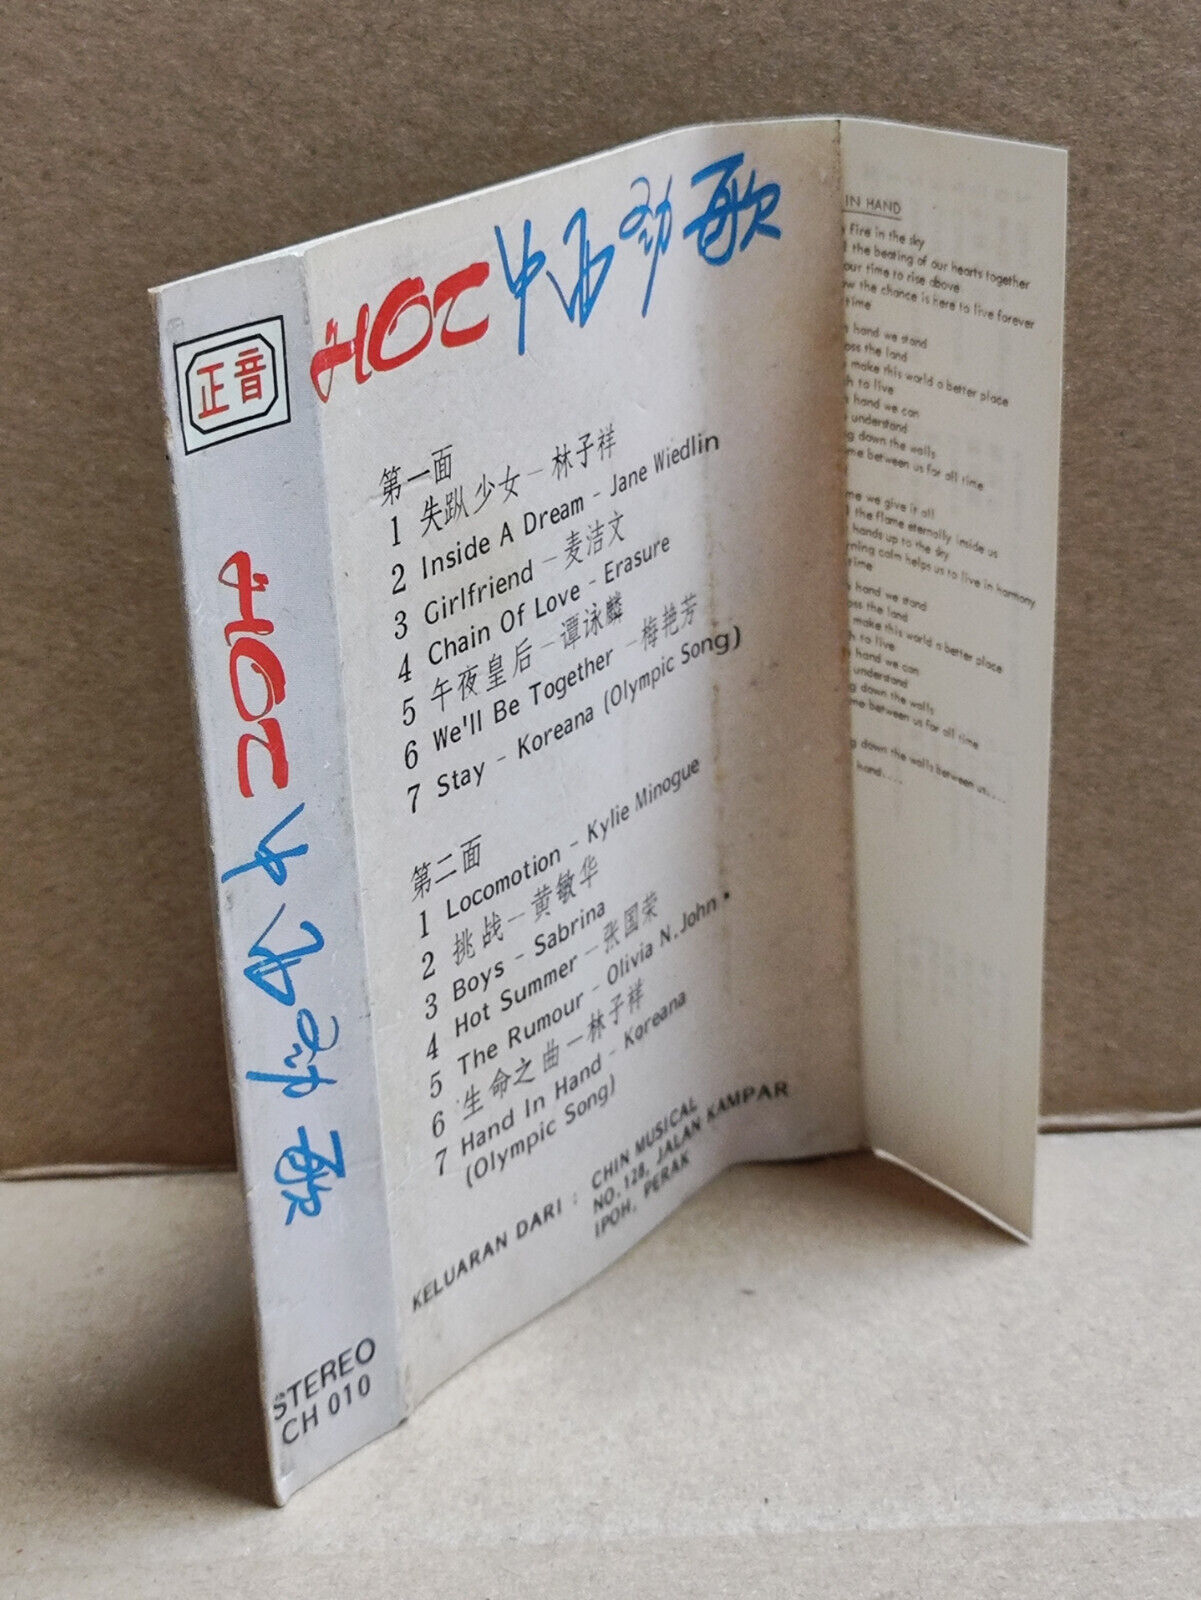 正音
HOT 中西劲歌
STEREO
CH 010
HOT 中西劲歌
第一面
1 失踪少女 - 林子祥
2 Inside A Dream - Jane Wiedlin
3 Girlfriend - 麦洁文
4 Chain Of Love - Erasure
5 午夜皇后 - 谭咏麟
6 We'll Be Together - 梅艳芳
7 Stay - Koreana (Olympic Song)
第二面
1 Locomotion - Kylie Minogue
2 挑战 - 黄敏华
3 Boys - Sabrina
4 Hot Summer - 张国荣
5 The Rumour - Olivia N. John •
6 生命之曲 - 林子祥
7 Hand In Hand - Koreana
(Olympic Song)
KELUARAN DARI : CHIN MUSICAL
NO. 128, JALAN KAMPAR
IPOH, PERAK
IN HAND
fire in the sky
the beating of our hearts together
our time to rise above
the chance is here to live forever
time
hand we stand
the land
make this world a better place
to live
hand we can
understand
down the walls
between us for all time
we give it all
the flame eternally inside us
hands up to the sky
calm helps us to live in harmony
time
hand we stand
the land
make this world a better place
to live
hand we can
understand
down the walls
between us for all time
down the walls between us....
hand....